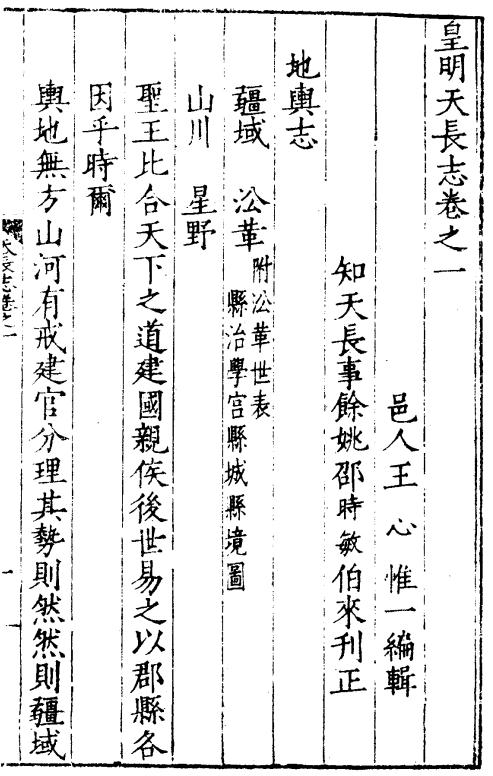 皇明天長志卷之一
邑人王心惟一編輯
知天長事餘姚邵時敏伯來刊正
地輿志
疆域 㳂革 附㳂革世表
縣治學宫縣城縣境圖
山川 星野
聖王比合天下之道建國親侯後世易之以郡縣各
因乎時爾
輿地無方山河有戒建官分理其勢則然然則疆域
天長志卷之一
一